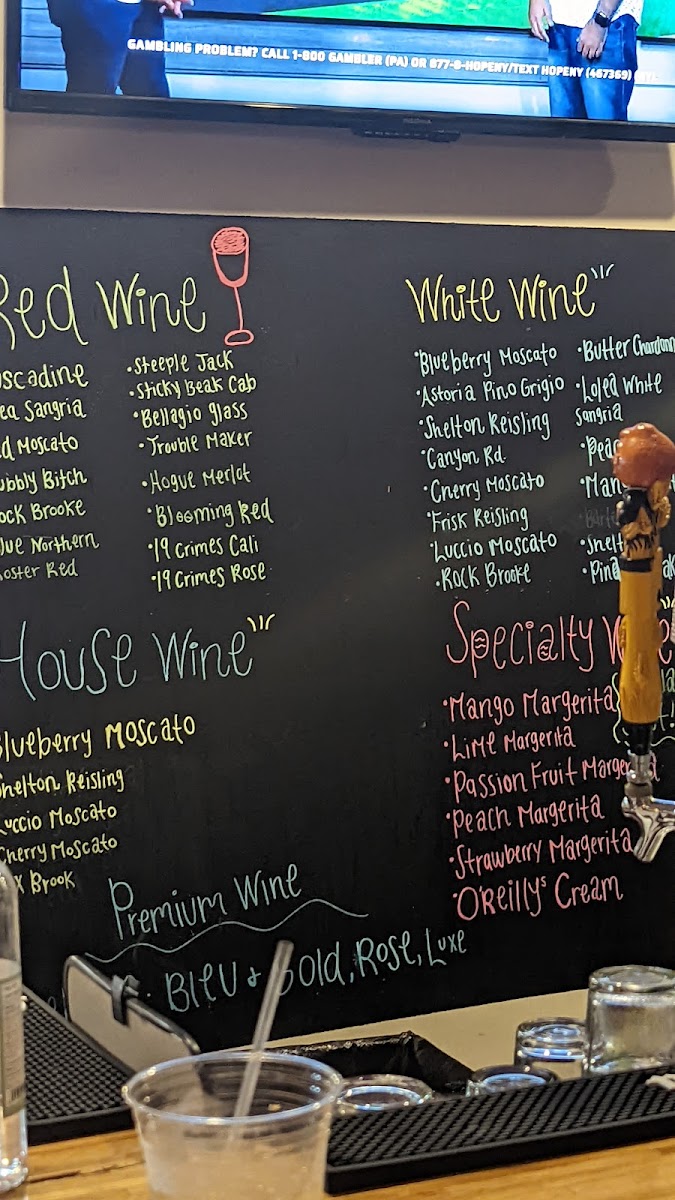 GAMBLING PROBLEM? CALL 1-800 GAMBLER (PA) OR 877-8-HOPENY/TEXT HOPENY (467369) (NY).
INSIGNIA
Red Wine
uscadine
ea Sangria
d Moscato
ubbly Bitch
ock Brooke
lue Northern
oster Red
•Steeple Jack
•Sticky Beak Cab
•Bellagio glass
•Trouble Maker
•Hogue Merlot
•Blooming Red
•19 Crimes Cali
•19 Crimes Rose
White Wine
•Blueberry Moscato
•Astoria Pino Grigio
•Shelton Reisling
•Canyon Rd.
•Cherry Moscato
•Frisk Reisling
•Luccio Moscato
•Rock Brooke
•Butter Chardonn
•Lolea White
Sangria
•Peac
•Man
•Shelt
•Pina
House Wine
Blueberry Moscato
Shelton Reisling
Luccio Moscato
Cherry Moscato
Brook
Specialty W e
•Mango Margerita
•Lime Margerita
•Passion Fruit Margerita
•Peach Margerita
•Strawberry Margerita
•O'Reilly's Cream
Premium Wine
•Bleu + Gold, Rose, Luxe